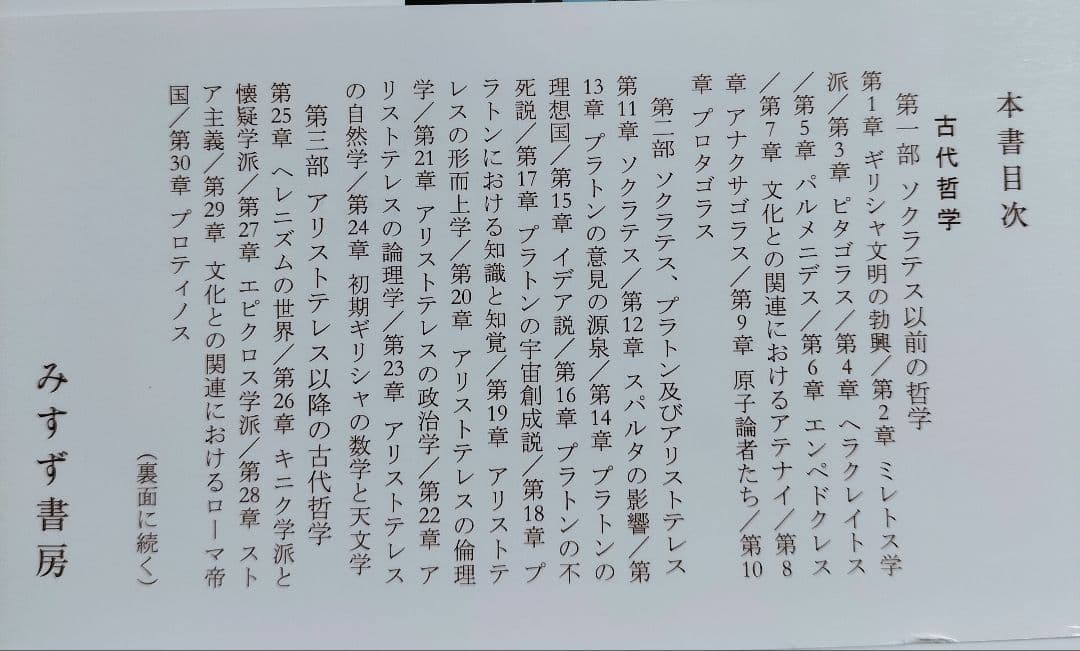 本書目次
古代哲学
第一部 ソクラテス以前の哲学
第1章 ギリシャ文明の勃興／第2章 ミレトス学
派／第3章 ピタゴラス／第4章 ヘラクレイトス
／第5章 パルメニデス／第6章 エンペドクレス
／第7章 文化との関連におけるアテナイ／第8
章 アナクサゴラス／第9章 原子論者たち／第10
章 プロタゴラス
第二部 ソクラテス、プラトン及びアリストテレス
第11章 ソクラテス／第12章 スパルタの影響／第
13章 プラトンの意見の源泉／第14章 プラトンの
理想国／第15章 イデア説／第16章 プラトンの不
死説／第17章 プラトンの宇宙創成説／第18章 プ
ラトンにおける知識と知覚／第19章 アリストテ
レスの形而上学／第20章 アリストテレスの倫理
学／第21章 アリストテレスの政治学／第22章 ア
リストテレスの論理学／第23章 アリストテレス
の自然学／第24章 初期ギリシャの数学と天文学
第三部 アリストテレス以降の古代哲学
第25章 ヘレニズムの世界／第26章 キニク学派と
懐疑学派／第27章 エピクロス学派／第28章 スト
ア主義／第29章 文化との関連におけるローマ帝
国／第30章 プロティノス
（裏面に続く）
みすず書房